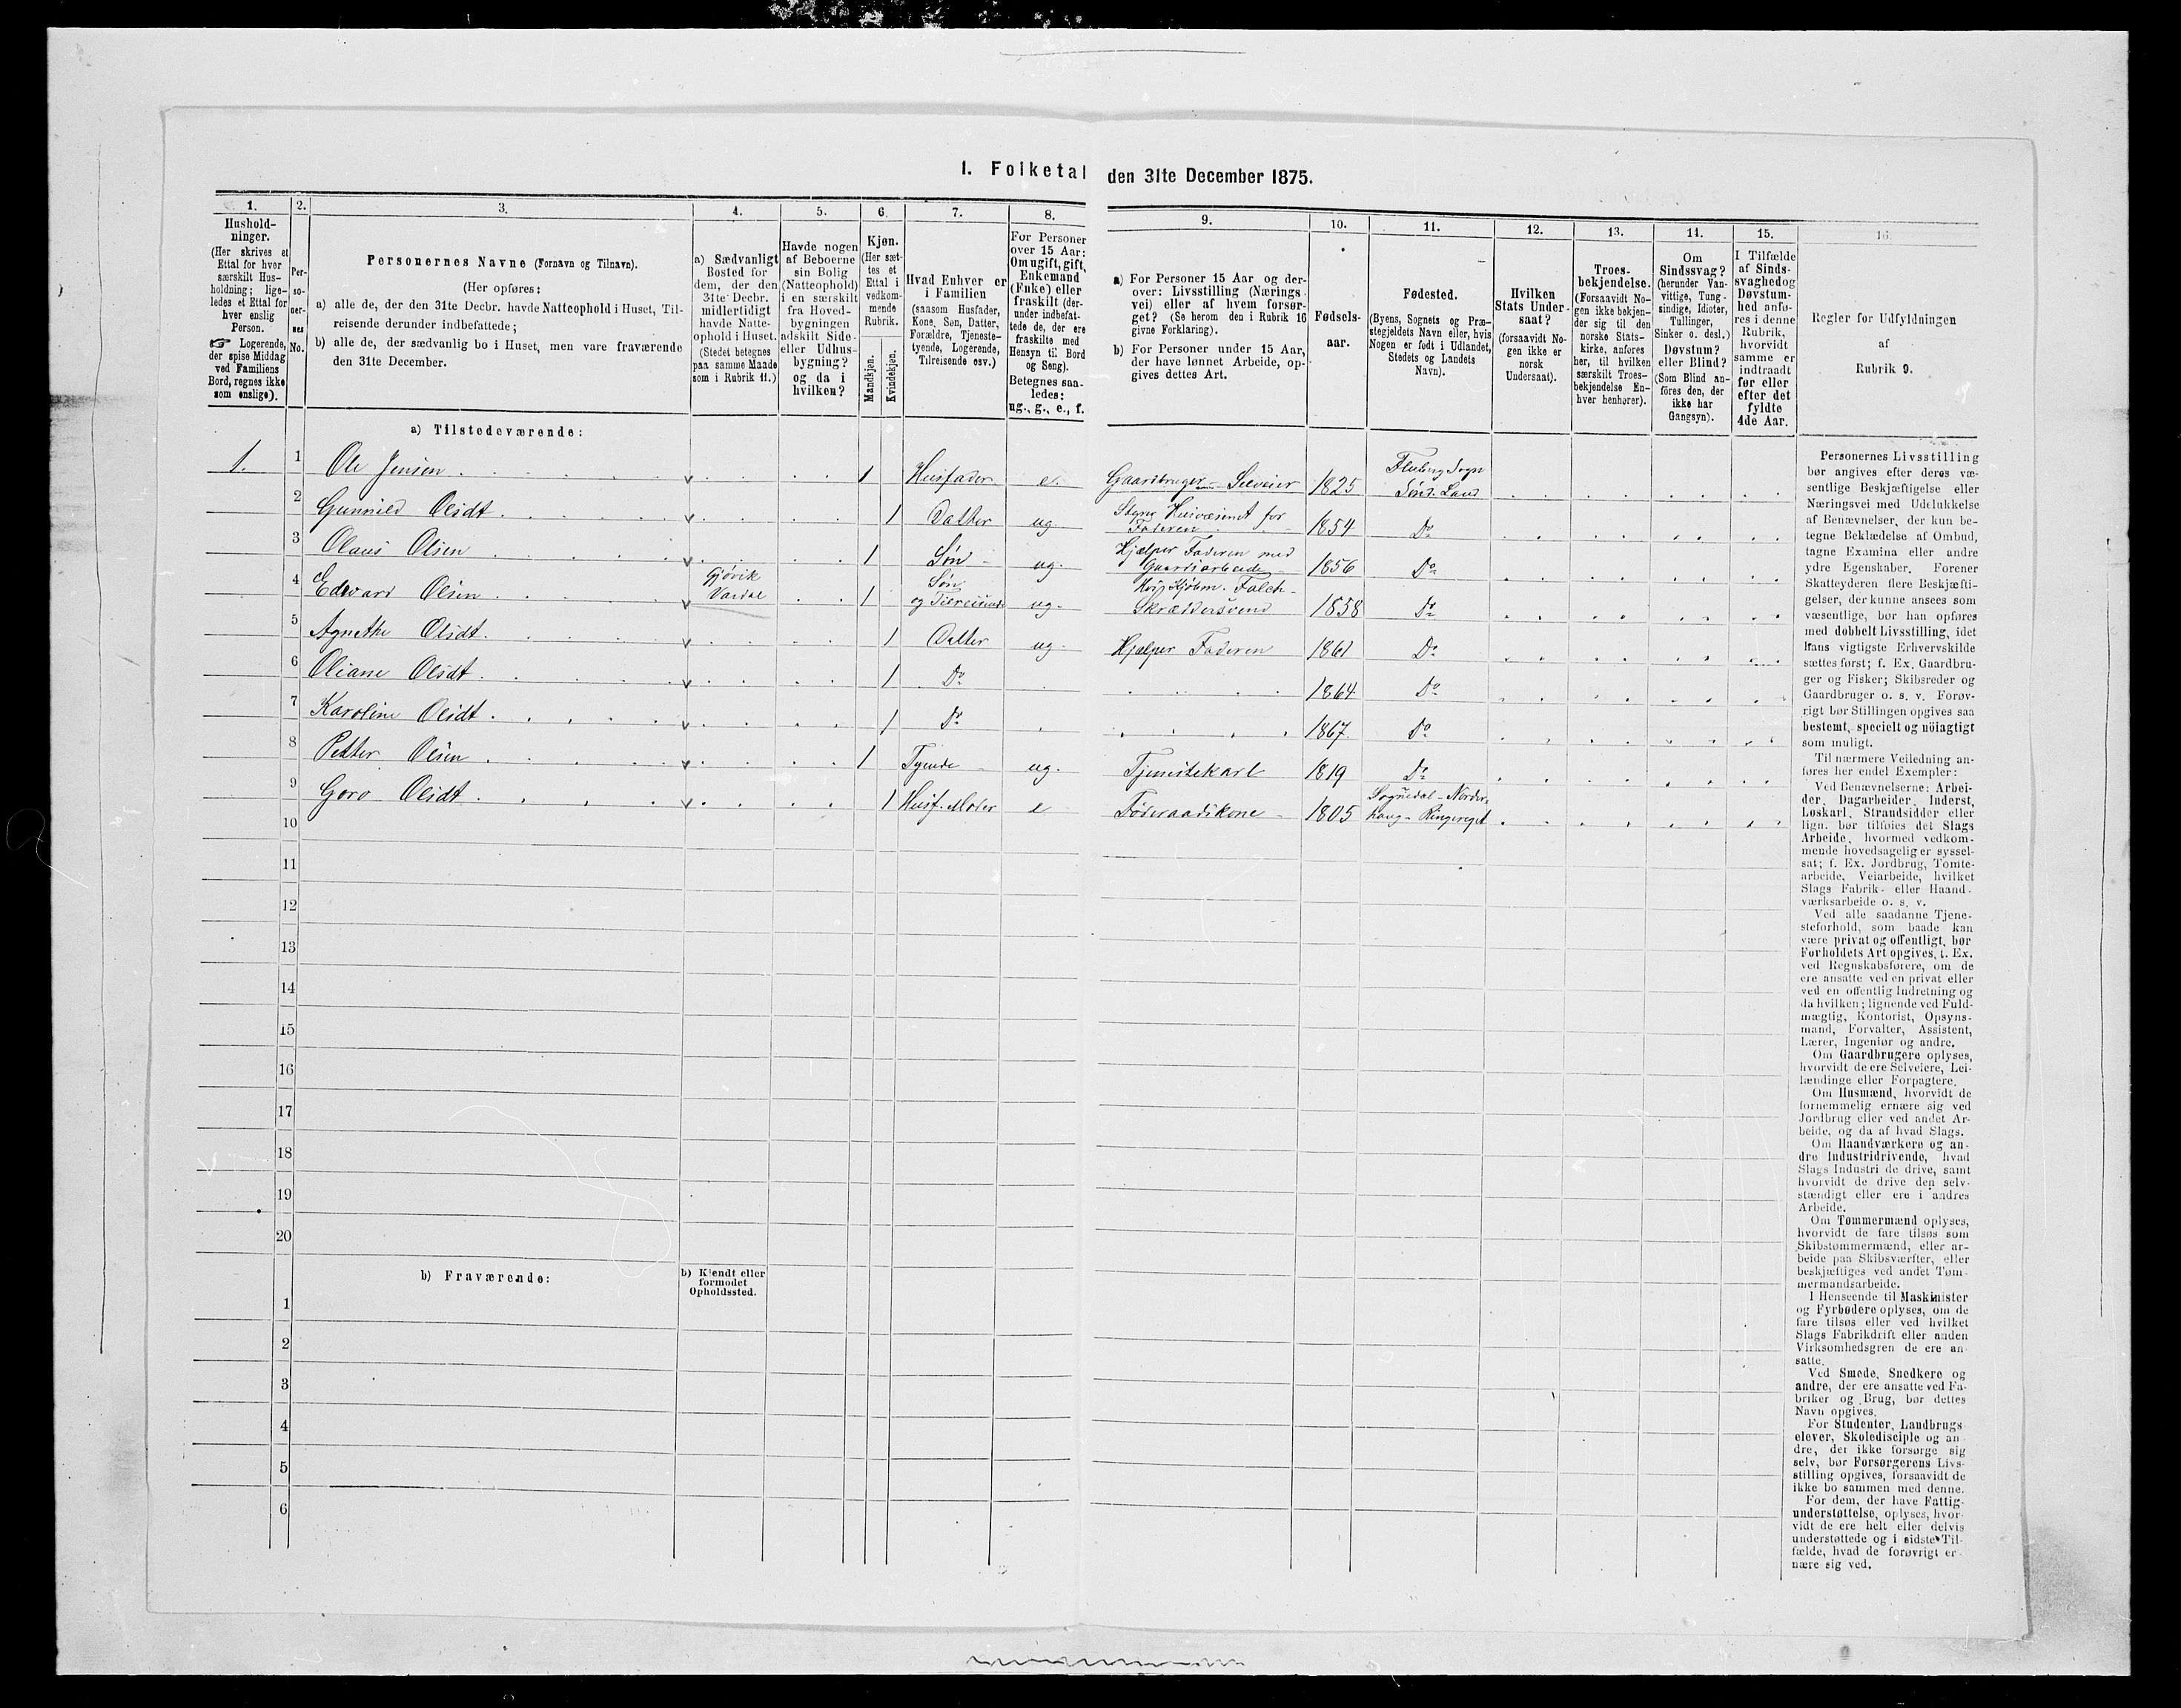 I. Folketal den 31te December 1875.
1.
2.
3.
4.
5.
6.
7.
8.
9.
10.
11.
12.
13.
14.
15.
16.
Hushold-
ninger.
(Her skrives et
Ettal for hver
særskilt Hus-
holdning; lige-
ledes et Ettal for
hver enslig
Person.
☞ Logerende,
der spise Middag
ved Familiens
Bord, regnes ikke
som enslige).
Per-
so-
ner-
nes
No.
Personernes Navne (Fornavn og Tilnavn).
(Her opføres:
a) alle de, der den 31te Decbr. havde Natteophold i Huset, Til-
reisende derunder indbefattede;
b) alle de, der sædvanlig bo i Huset, men vare fraværende
den 31te December.
a) Sædvanligt
Bosted for
dem, der den
31te Decbr.
midlertidigt
havde Natte-
ophold i Huset.
(Stedet betegnes
paa samme Maade
som i Rubrik 11.)
Havde nogen
af Beboerne
sin Bolig
(Natteophold)
i en særskilt
fra Hoved-
bygningen
adskilt Side-
eller Udhus-
bygning?
og da i
hvilken?
Kjøn.
(Her sæt-
tes et
Ettal i
vedkom-
mende
Rubrik.
Mandkjøn.
Kvindekjøn.
Hvad Enhver er
i Familien
(saasom Husfader,
Kone, Søn, Datter,
Forældre, Tjeneste-
tyende, Logerende,
Tilreisende osv.)
For Personer
over 15 Aar:
Om ugift, gift,
Enkemand
(Enke) eller
fraskilt (der-
under indbefat-
tede de, der ere
fraskilte med
Hensyn til Bord
og Seng).
Betegnes saa-
ledes:
ug., g., e., f.
a) For Personer 15 Aar og der-
over: Livsstilling (Nærings-
vei) eller af hvem forsør-
get? (Se herom den i Rubrik 16
givne Forklaring).
b) For Personer under 15 Aar,
der have lønnet Arbeide, op-
gives dettes Art.
Fødsels-
aar.
Fødested.
(Byens, Sognets og Præ-
stegjeldets Navn eller, hvis
Nogen er født i Udlandet,
Stedets og Landets
Navn).
Hvilken
Stats Under-
saat?
(forsaavidt No-
gen ikke er
norsk
Undersaat).
Troes-
bekjendelse.
(Forsaavidt No-
gen ikke bekjen-
der sig til den
norske Stats-
kirke, anføres
her, til hvilken
særskilt Troes-
bekjendelse En-
hver henhører).
Om
Sindssvag?
(herunder Van-
vittige, Tung-
sindige, Idioter,
Tullinger,
Sinker o. desl.)
Døvstum?
eller Blind?
(Som Blind an-
føres den, der
ikke har
Gangsyn).
I Tilfælde
af Sinds-
svaghed og
Døvstum-
hed anfø-
res i denne
Rubrik,
hvorvidt
samme er
indtraadt
før eller
efter det
fyldte
4de Aar.
Regler for Udfyldningen
af
Rubrik 9.
a) Tilstedeværende:
1. 1 Ole Jensen v 1 Husfader e. Gaardbruger - Selveier 1825 Fluberg Sogn Sønd. Land
2 Gunnild Olsdt v 1 Datter ug. Styrer Husvæsenet for Faderen 1854 Do
3 Olaus Olsen v 1 Søn ug. Hjælper Faderen med Gaardsarbeide 1856 Do
4 Edvard Olsen v Gjövik Vardal 1 Søn og Tilreisende ug. Skræddersvend 1858 Do
5 Agnethe Olsdt v 1 Datter ug. Hjælper Faderen 1861 Do
6 Oliane Olsdt v 1 Do 1864 Do
7 Karoline Olsdt v 1 Do 1867 Do
8 Petter Olsen v 1 Tyende ug. Tjenestekarl 1819 Do
9 Goro Olsdt v 1 Husf. Moder e Føderaadskone 1805 Sognedal - Norder-
houg - Ringeriget
10
11
12
13
14
15
16
17
18
19
20
b) Fraværende:
b) Kjendt eller
formodet
Opholdssted.
1
2
3
4
5
6
Personernes Livsstilling
bør angives efter deres væ-
sentlige Beskjæftigelse eller
Næringsvei med Udelukkelse
af Benævnelser, der kun be-
tegne Beklædelse af Ombud,
tagne Examina eller andre
ydre Egenskaber. Forener
Skatteyderen flere Beskjæfti-
gelser, der kunne ansees som
væsentlige, bør han opføres
med dobbelt Livsstilling, idet
hans vigtigste Erhvervskilde
sættes først; f. Ex. Gaardbru-
ger og Fisker; Skibsreder og
Gaardbruger o. s. v. Forøv-
rigt bør Stillingen opgives saa
bestemt, specielt og nöiagtigt
som muligt.
Til nærmere Veiledning an-
føres her endel Exempler:
Ved Benævnelserne: Arbei-
der, Dagarbeider, Inderst,
Løskarl, Strandsidder eller
lign. bør tilføies det Slags
Arbeide, hvormed vedkom-
mende hovedsagelig er syssel-
sat; f. Ex. Jordbrug, Tomte-
arbeide, Veiarbeide, hvilket
Slags Fabrik- eller Haand-
værksarbeide o. s. v.
Ved alle saadanne Tjene-
steforhold, som baade kan
være privat og offentligt, bør
Forholdets Art opgives, f. Ex.
ved Regnskabsførere, om de
ere ansatte ved en privat eller
ved en offentlig Indretning og
da hvilken; lignende ved Fuld-
mægtig, Kontorist, Opsyns-
mand, Forvalter, Assistent,
Lærer, Ingeniør og andre.
Om Gaardbrugere oplyses,
hvorvidt de ere Selveiere, Lei-
lændinge eller Forpagtere.
Om Husmænd, hvorvidt de
fornemmelig ernære sig ved
Jordbrug eller ved andet Ar-
beide, og da af hvad Slags.
Om Haandværkere og an-
dre Industridrivende, hvad
Slags Industri de drive, samt
hvorvidt de drive den selv-
stændigt eller ere i andres
Arbeide.
Om Tømmermænd oplyses,
hvorvidt de fare tilsøs som
Skibstømmermænd, eller ar-
beide paa Skibsværfter, eller
beskjæftiges ved andet Tøm-
mermandsarbeide.
I Henseende til Maskinister
og Fyrbødere oplyses, om de
fare tilsøs eller ved hvilket
Slags Fabrikdrift eller anden
Virksomhedsgren de ere an-
satte.
Ved Smede, Snedkere og
andre, der ere ansatte ved Fa-
briker og Brug, bør dettes
Navn opgives.
For Studenter, Landbrugs-
elever, Skoledisciple og an-
dre, der ikke forsørge sig
selv, bør Forsørgerens Livs-
stilling opgives, forsaavidt de
ikke bo sammen med denne.
For dem, der have Fattig-
understøttelse, oplyses, hvor-
vidt de ere helt eller delvis
understøttede og i sidste Til-
fælde, hvad de forøvrigt er-
nære sig ved.